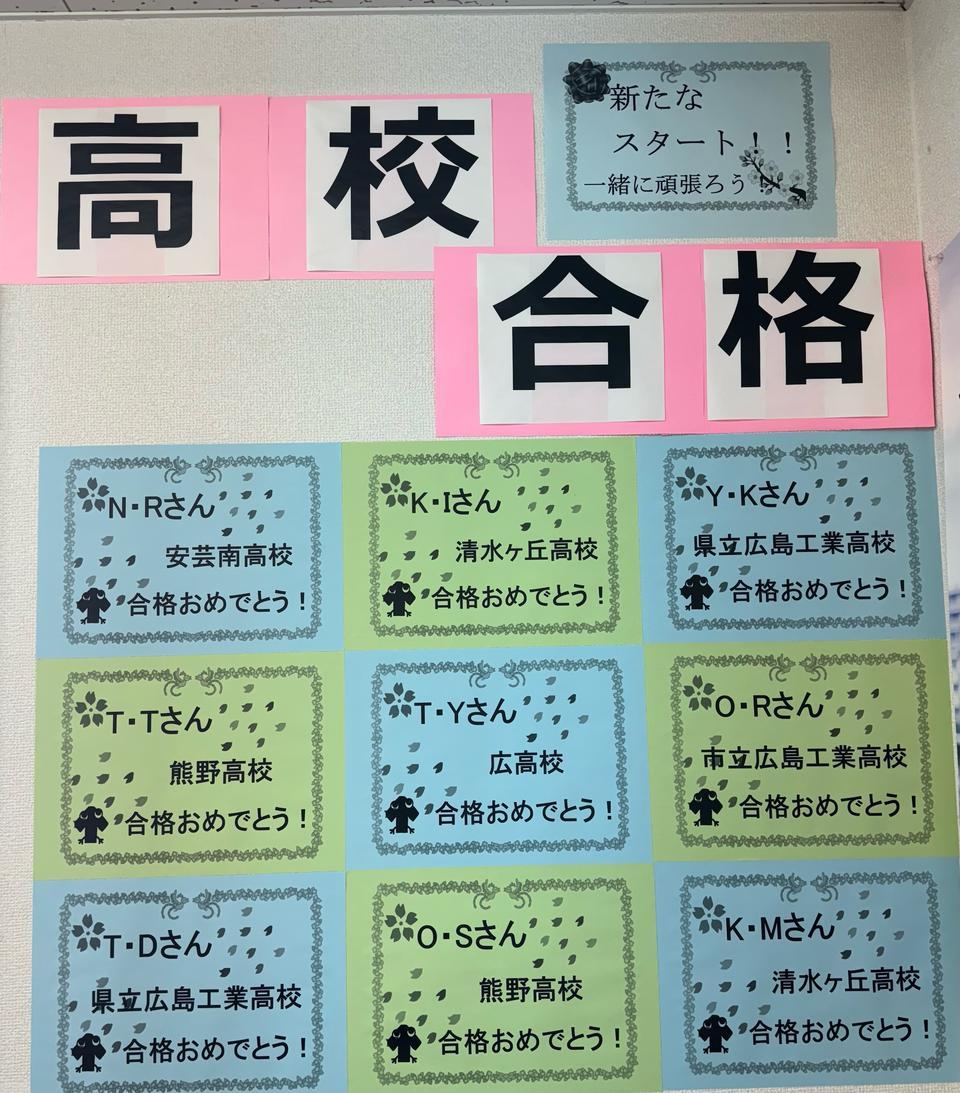 高校
新たな
スタート！！
一緒に頑張ろう！
合格
N・Rさん
安芸南高校
合格おめでとう！
K・Iさん
清水ヶ丘高校
合格おめでとう！
Y・Kさん
県立広島工業高校
合格おめでとう！
T・Tさん
熊野高校
合格おめでとう！
T・Yさん
広高校
合格おめでとう！
O・Rさん
市立広島工業高校
合格おめでとう！
T・Dさん
県立広島工業高校
合格おめでとう！
O・Sさん
熊野高校
合格おめでとう！
K・Mさん
清水ヶ丘高校
合格おめでとう！